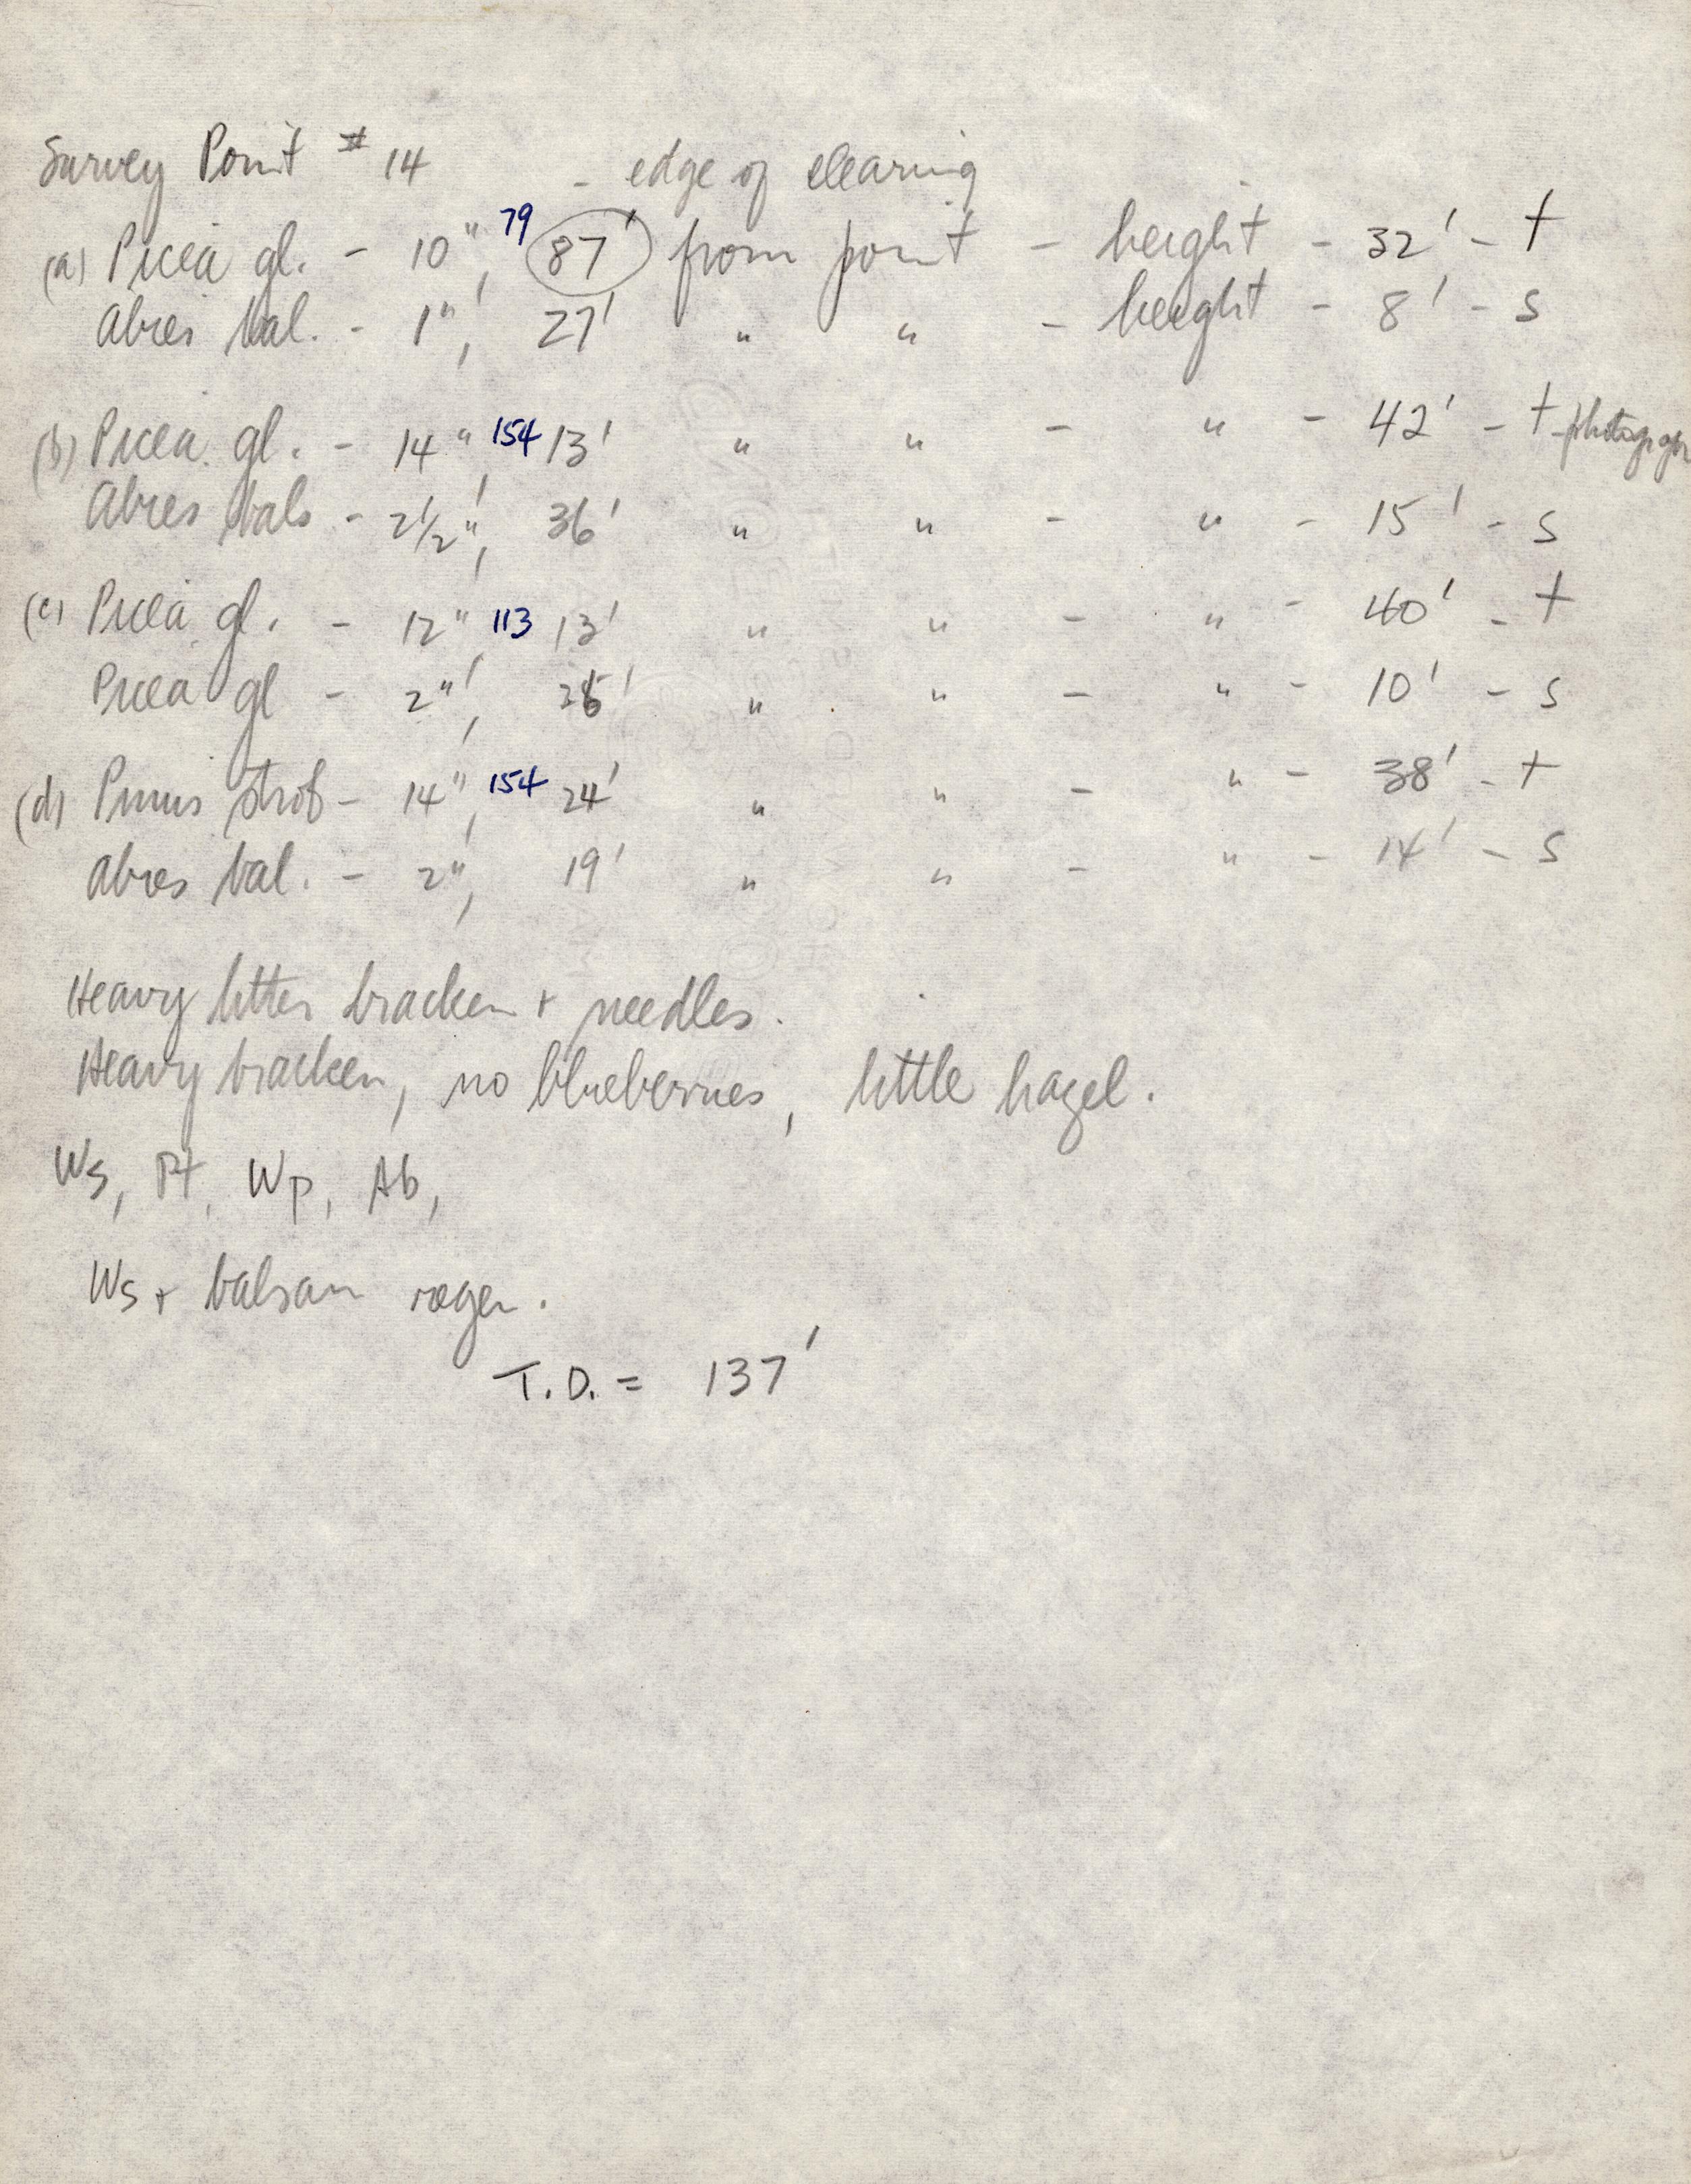 Survey Point # 14 - edge of clearing
(a) Picea gl. - 10", 79 87' from point - height - 32' - t
Abies bal. - 1", 27' " " - height - 8' - s
(b) Picea gl. - 14", 154 13' " " - " - 42' - t - photograph
Abies bals - 2 1/2", 36' " " - " - 15' - s
(c) Picea gl. - 12", 113 13' " " - " - 40' - t
Picea gl - 2", " " - " - 10' - s
(d) Pinus strob - 14", 154 24' " " - " - 38' - t
Abies bal. - 2", 19' " " - " - 14' - s
Heavy litter bracken + needles.
Heavy bracken, no blueberries, little hazel.
Ws, Pt, Wp, Ab,
Ws + balsam regen.
T.D. = 137'